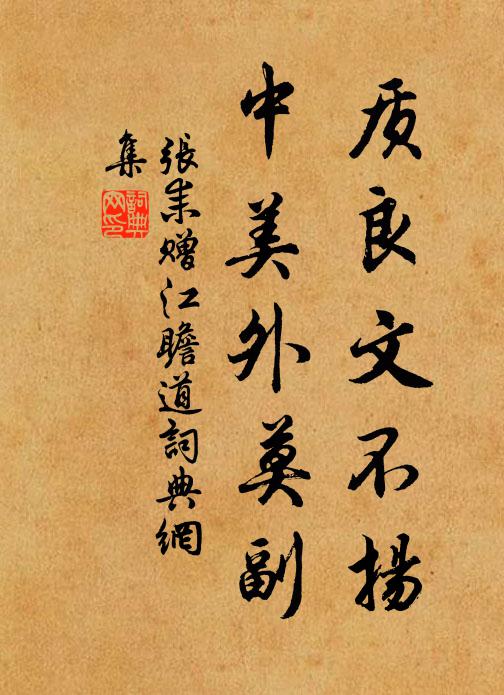 质良文不揚
中美外莫副
張耒贈江瞻道詞典網
集
詞典
网印